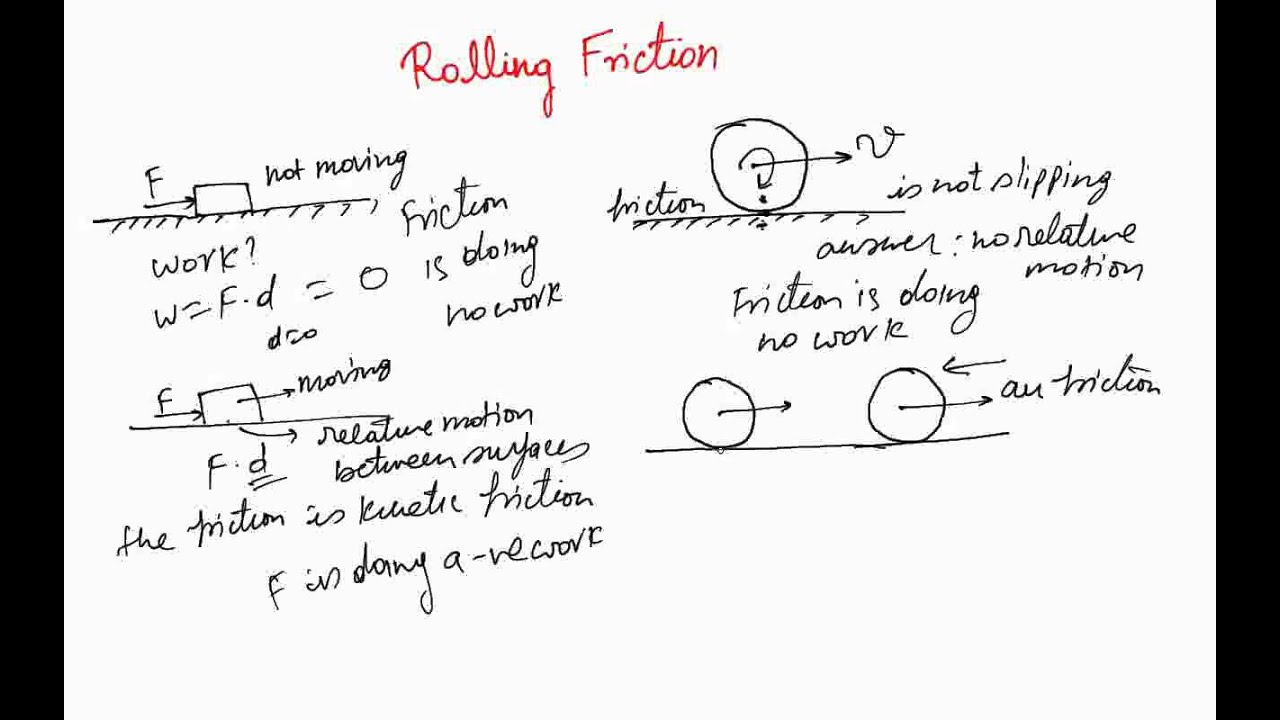 Rolling Friction
F
not moving
Friction
is doing
no work
work?
w=F.d = 0
d=0
F
moving
relative motion
between surfaces
F.d
the friction is kinetic friction
F is doing a -ve work
v
friction
is not slipping
answer: no relative
motion
Friction is doing
no work
air friction